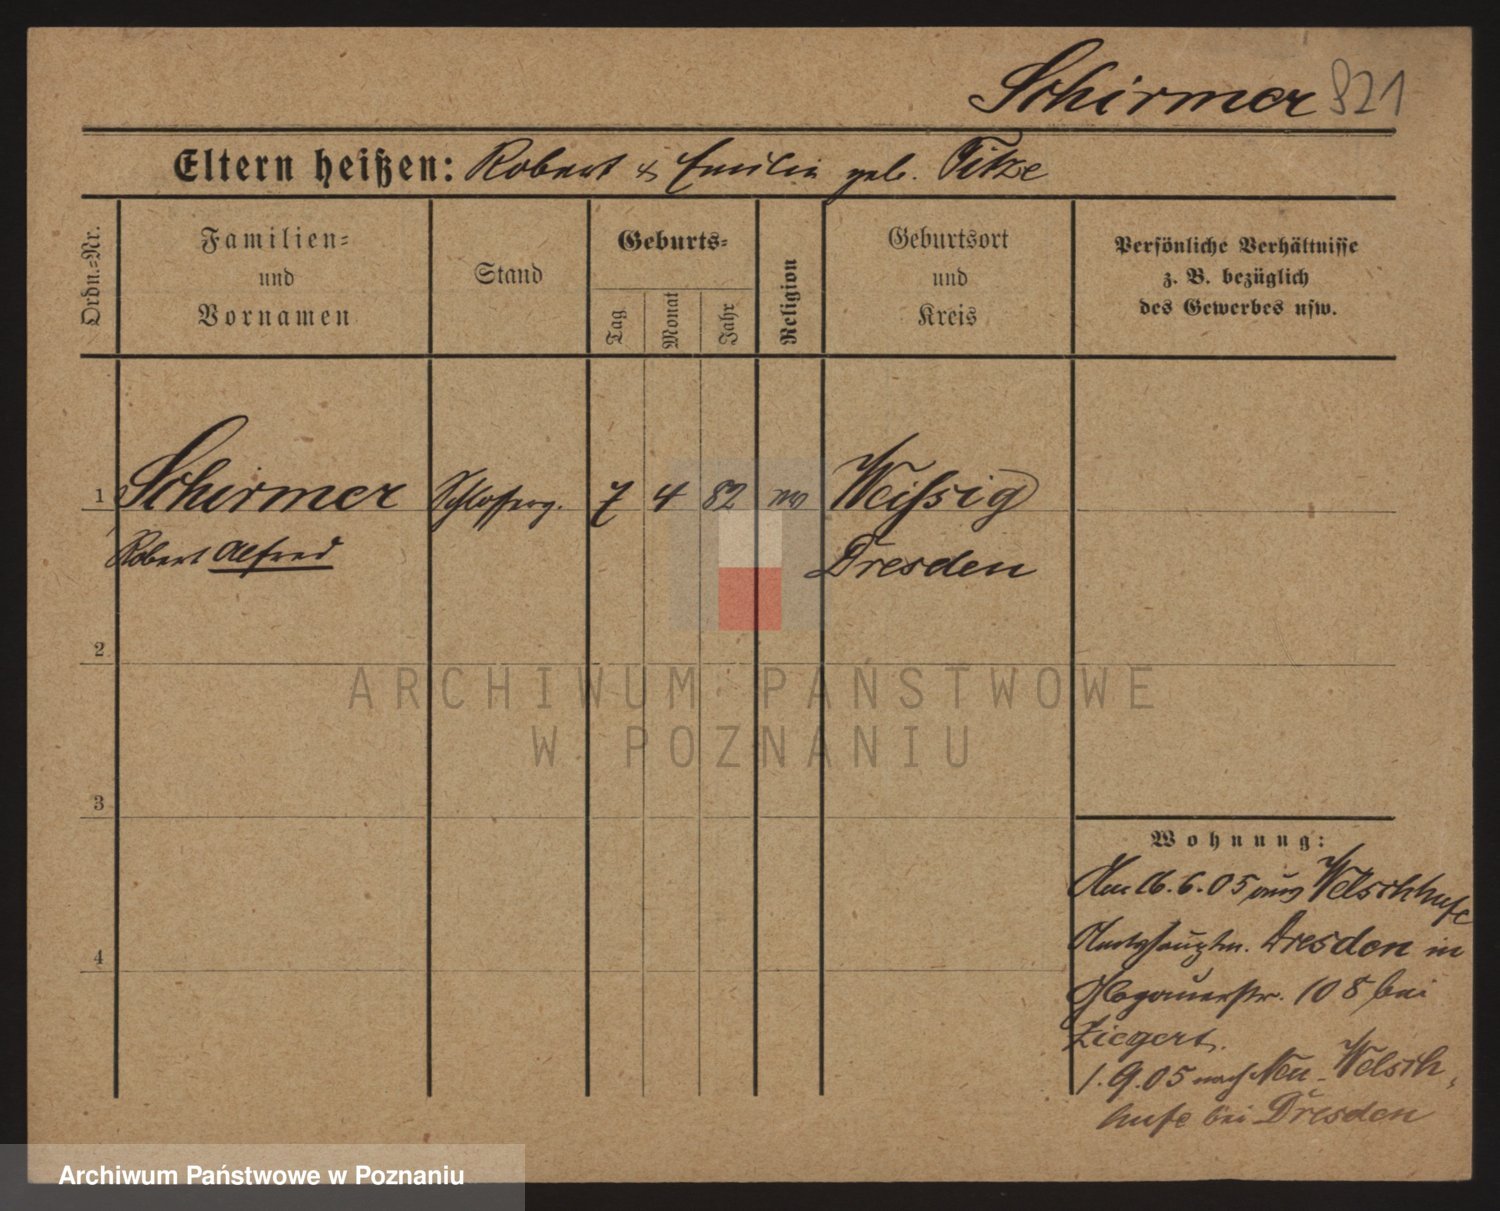 Schirmer 821
Eltern heißen: Robert & Emilie geb. Titze
Ordn.-Nr.
Familien-
und
Vornamen
Stand
Geburts-
Tag
Monat
Jahr
Religion
Geburtsort
und
Kreis
Persönliche Verhältnisse
z. B. bezüglich
des Gewerbes usw.
1 Schirmer Schlosserg. 7 4 82 Weißig
Robert Alfred Dresden
2
3
4
ARCHIWUM PAŃSTWOWE
W POZNANIU
Wohnung:
Am 16.6.05 aus Welschhufe
Amtshauptm. Dresden in
Glogauerstr. 108 bei
Ziegert.
1.9.05 nach Neu-Welsch-
hufe bei Dresden
Archiwum Państwowe w Poznaniu